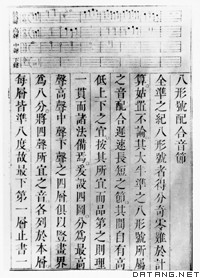 八形號配合音節
全準之紀八形號者得分奇零雖於計
算姑置不論其大半準之八形號所屬
之音配合遲速長短之節其間自有高
低上下之宜按其所宜而品第之則理
一貫而諸法備焉爰設四圖分為最高
聲高聲中聲下聲之四層俱以豎畫界
為八分將四聲所宜之音各列於本層
每層皆準八度故最下第一層止書二
DATANG.NET